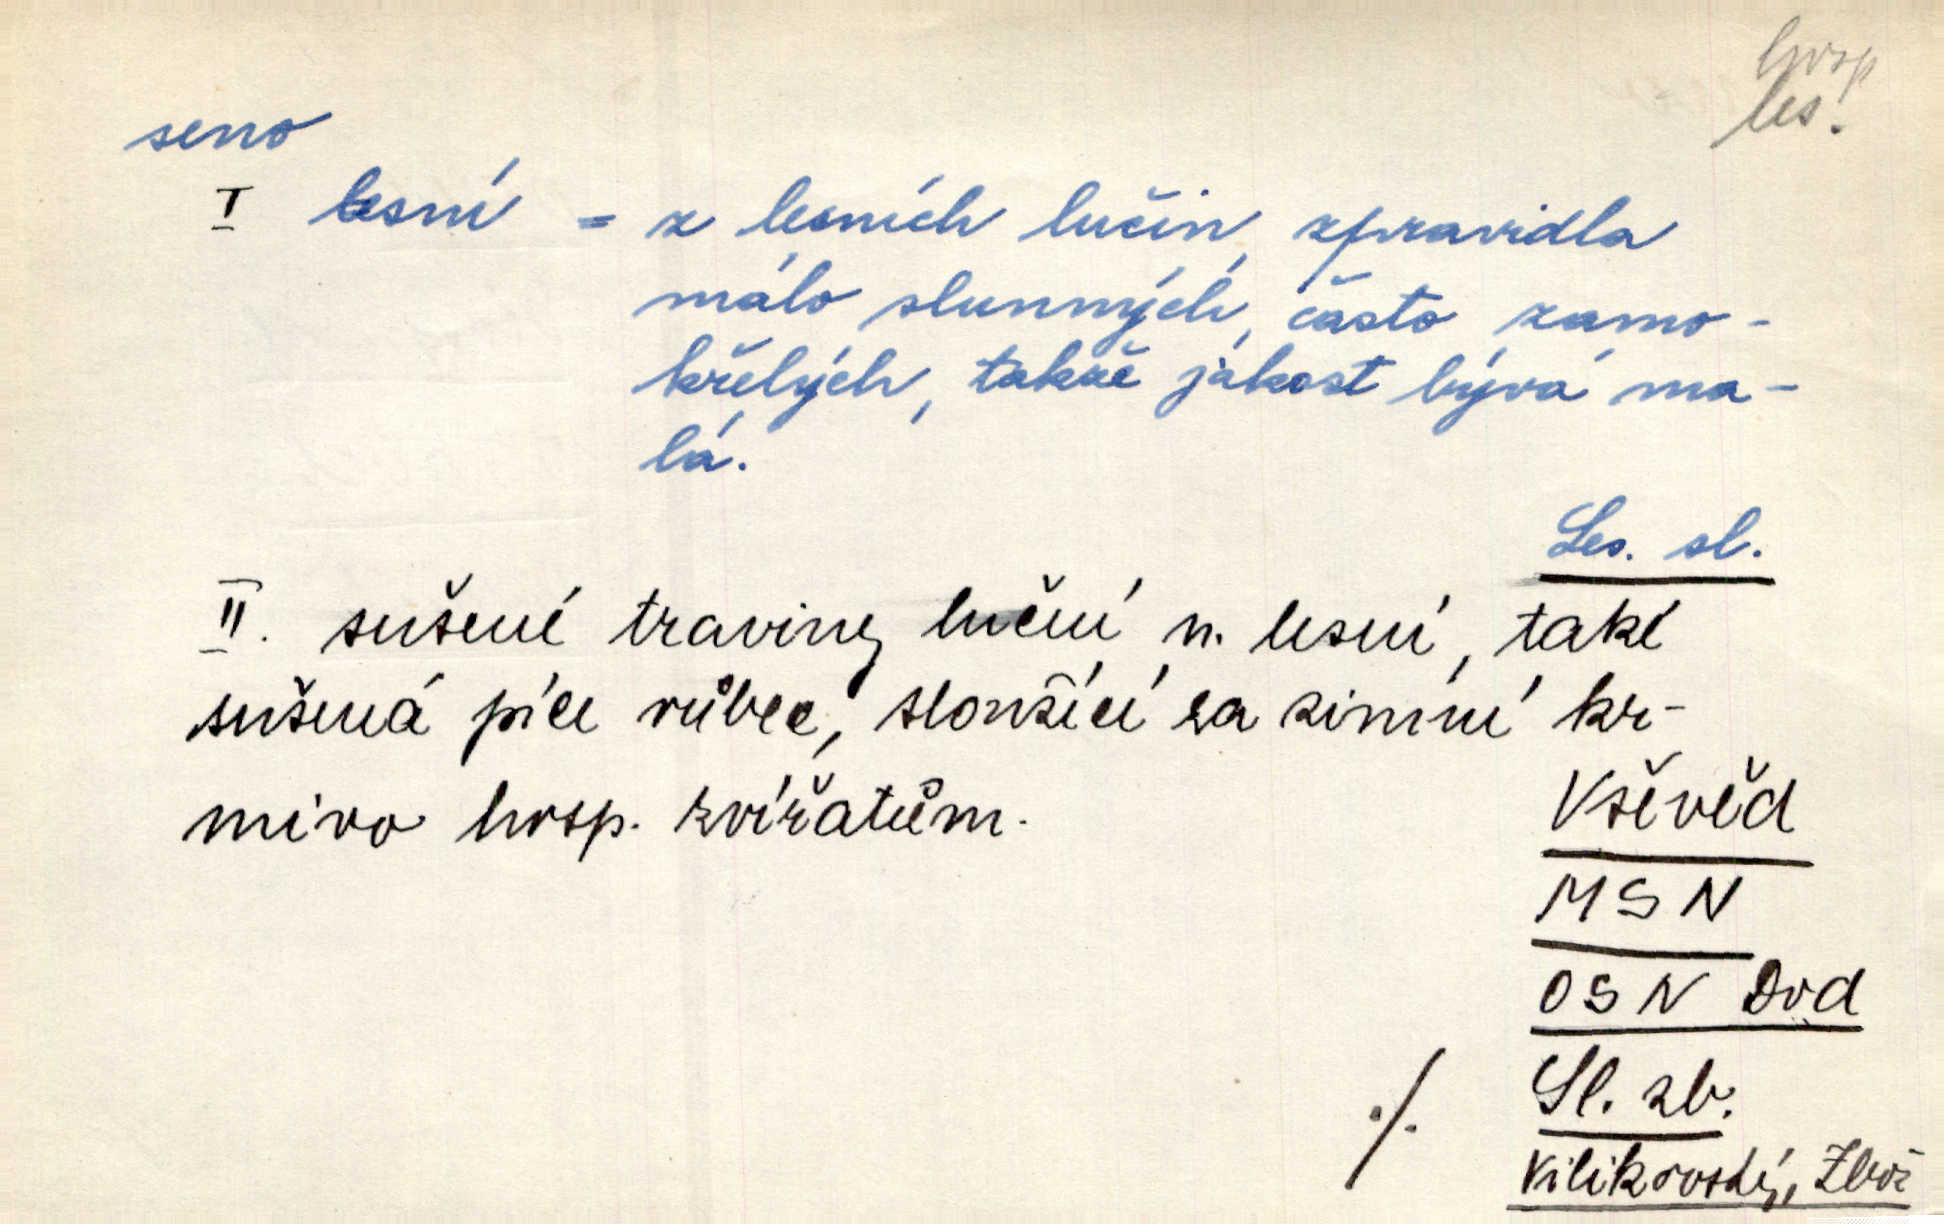 hosp
les.
seno
I lesní = z lesních lučin, zpravidla
málo slunných, často zamo-
křelých, takže jakost bývá ma-
lá.
Les. sl.
II. sušené traviny luční n. lesní, také
sušená píce vůbec, sloužící za zimní kr-
mivo hosp. zvířatům.
Vševěd
MSN
OSN Dod
Sl. zb.
./.
Vilikovský, Zbož